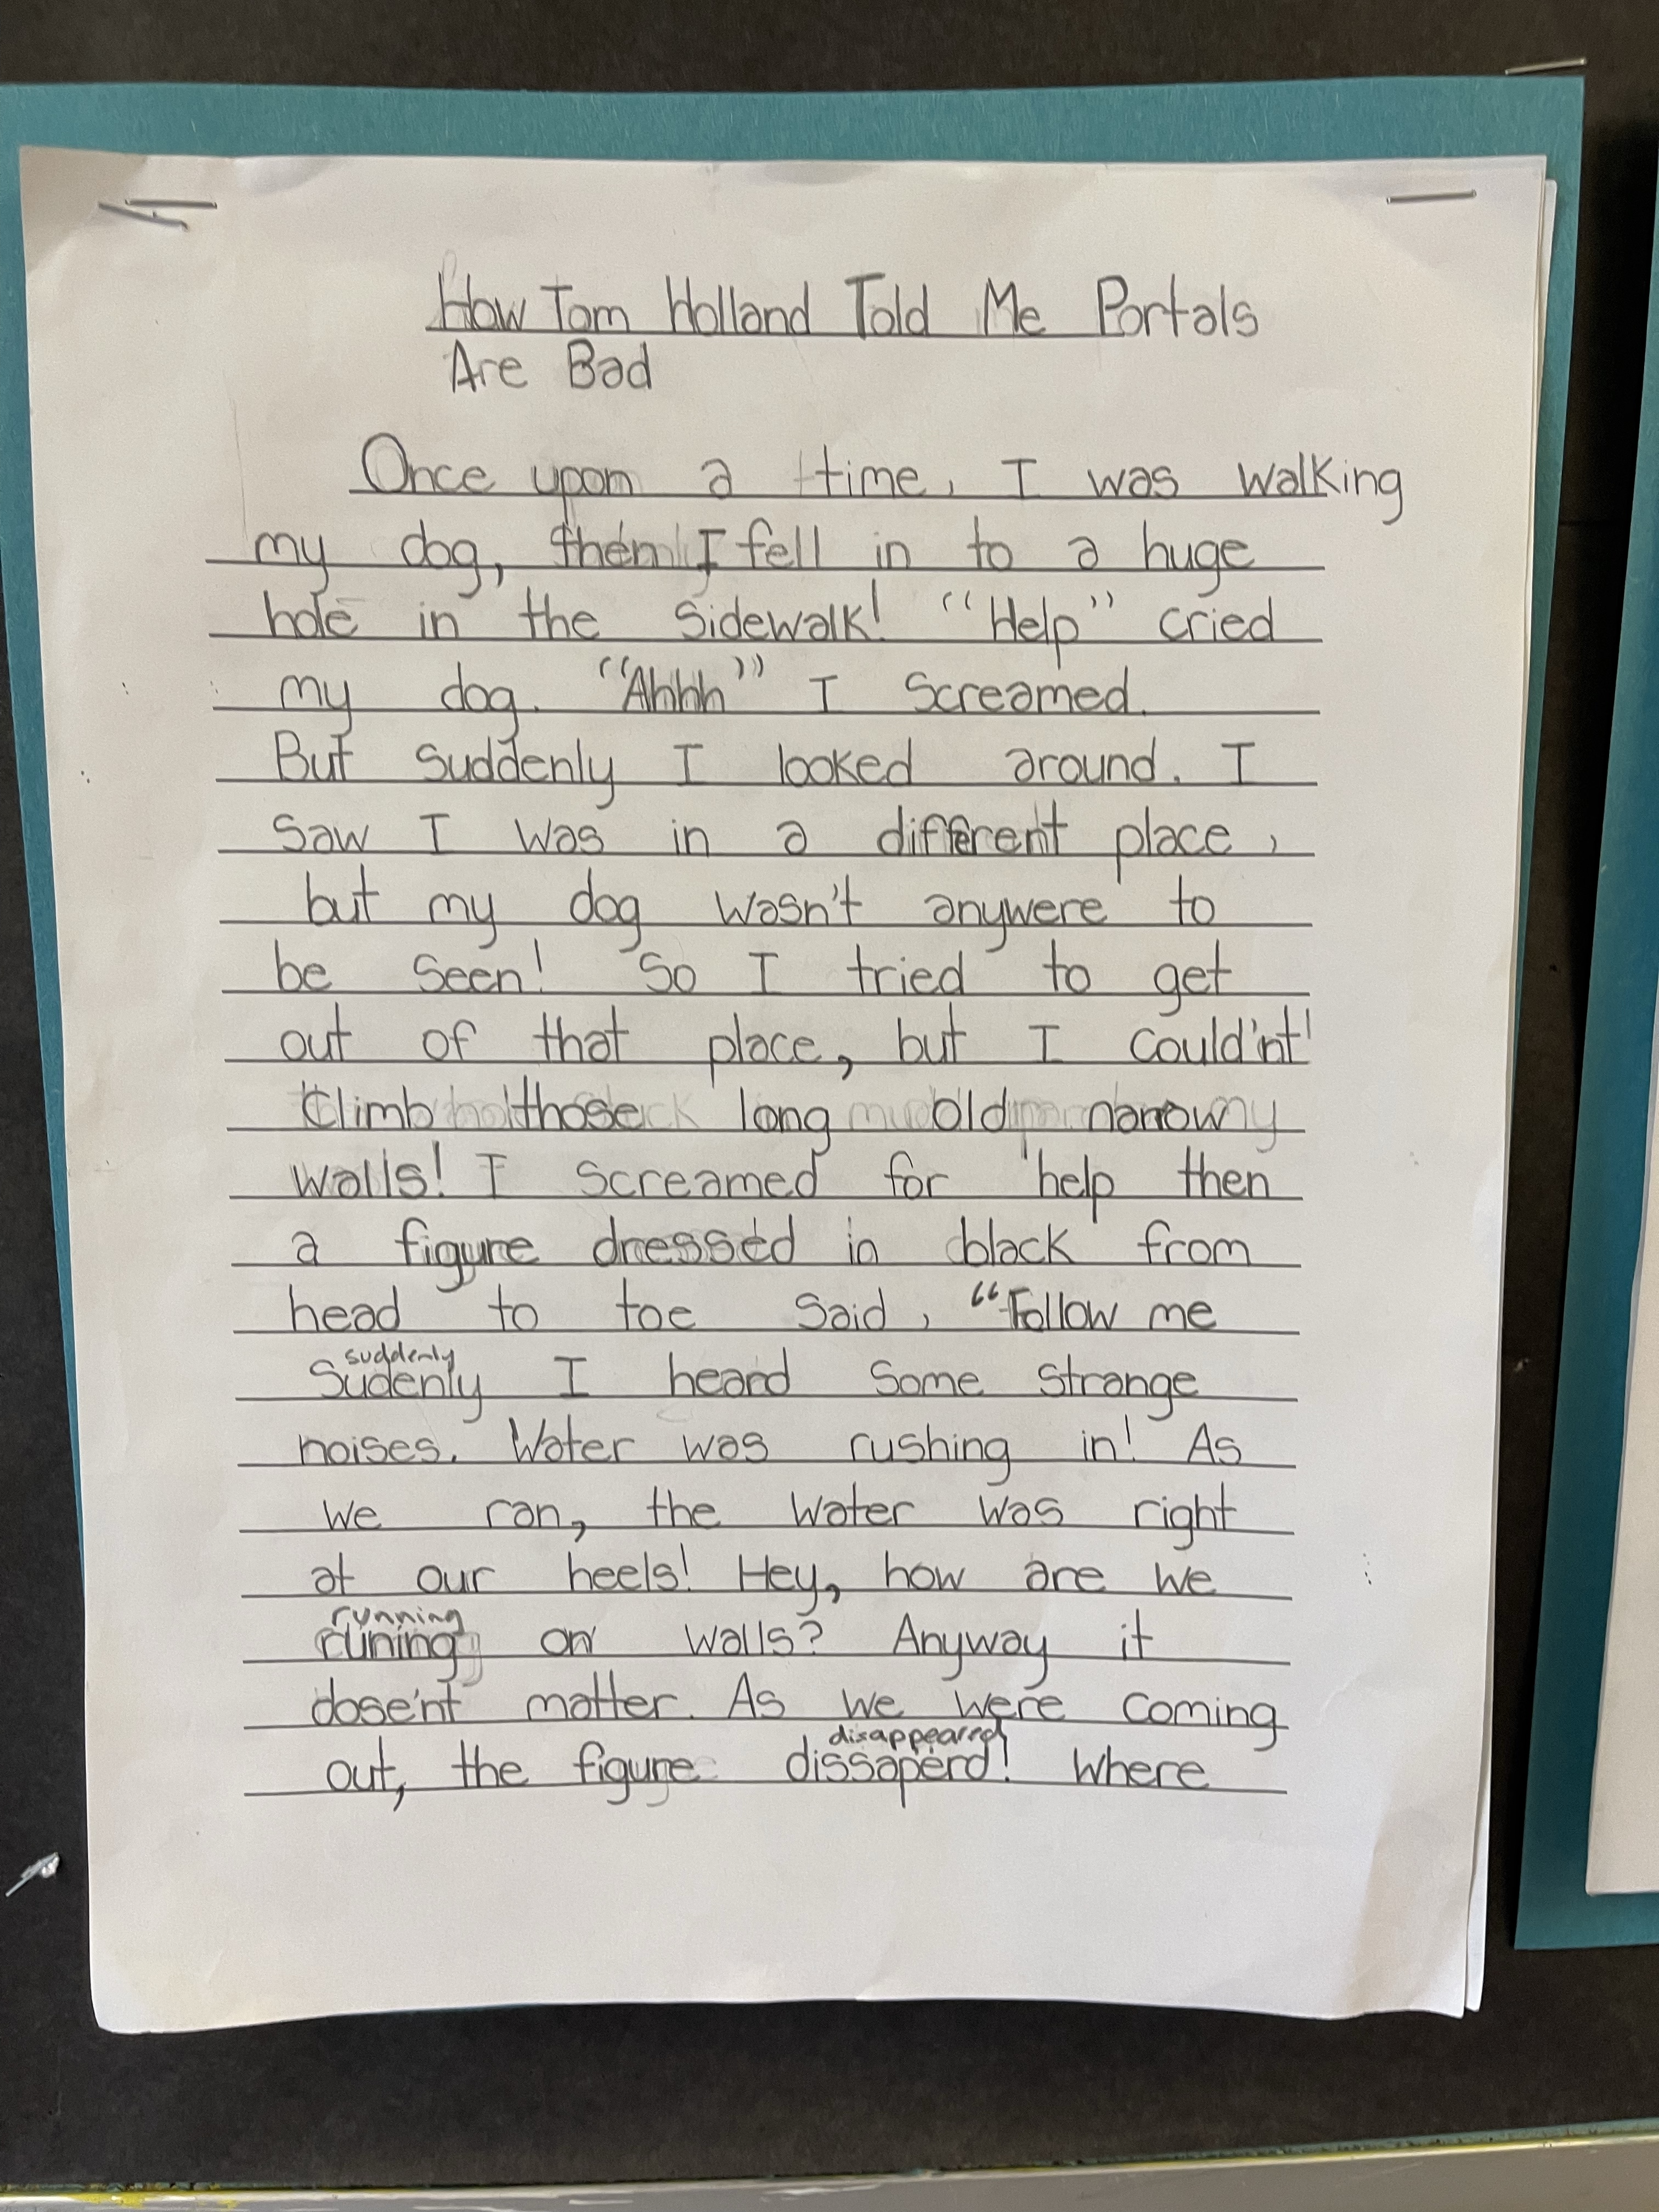 How Tom Holland Told Me Portals
Are Bad
Once upon a time, I was walking
my dog, then I fell in to a huge
hole in the sidewalk! "Help" cried
my dog. "Ahhh" I screamed.
But suddenly I looked around. I
saw I was in a different place,
but my dog wasn't anywere to
be seen! So I tried to get
out of that place, but I could'nt!
Climb those long old narrow
walls! I screamed for help then
a figure dressed in black from
head to toe said, "Follow me
suddenly
Sudenly I heard some strange
noises. Water was rushing in! As
we ran, the water was right
at our heels! Hey, how are we
running
runing on walls? Anyway it
dose'nt matter. As we were coming
disappeared
out, the figure dissaperd! Where